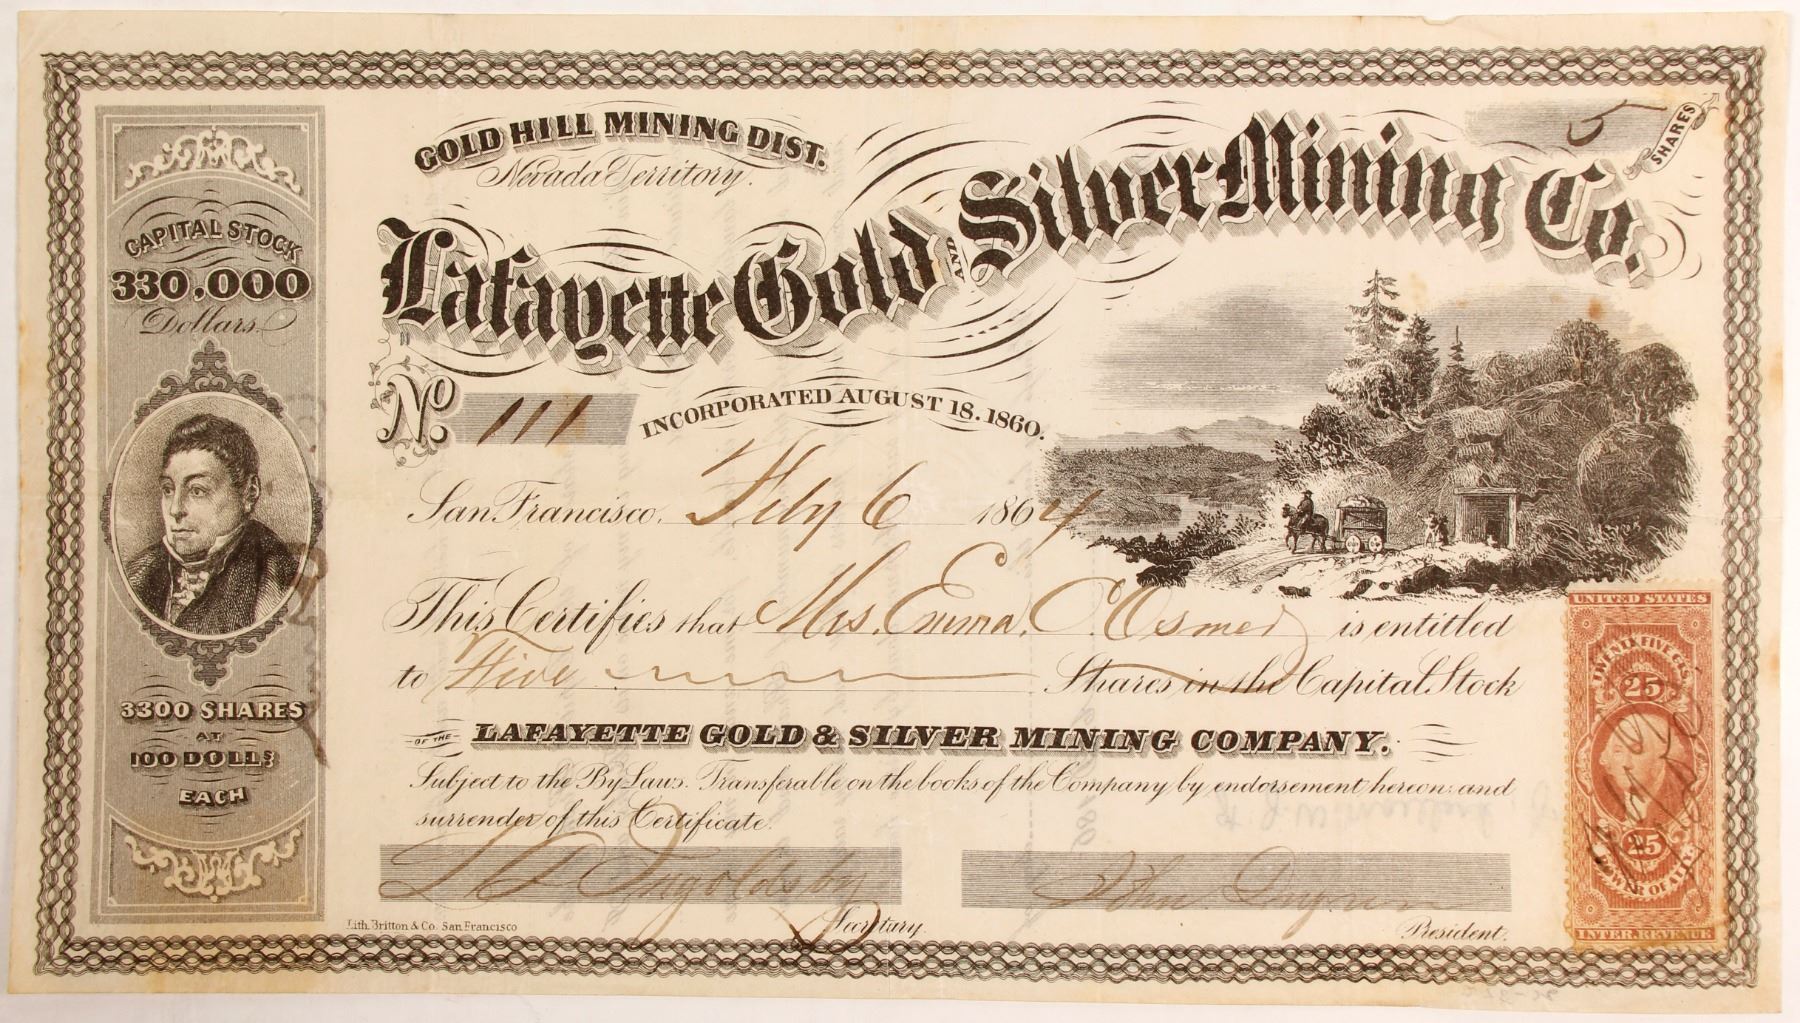 GOLD HILL MINING DIST.
Nevada Territory.
5
SHARES
Lafayette Gold AND Silver Mining Co.
CAPITAL STOCK
330,000
Dollars.
3300 SHARES
AT
100 DOLLS
EACH
No. 111
INCORPORATED AUGUST 18. 1860.
San Francisco, Feby 6 1864
This Certifies that Mrs. Emma. C. Osmer is entitled
to Five Shares in the Capital Stock
OF THE LAFAYETTE GOLD & SILVER MINING COMPANY.
Subject to the By Laws. Transferable on the books of the Company by endorsement hereon and
surrender of this Certificate.
Ingoldsby
Secretary.
John
President.
Lith. Britton & Co. San Francisco
UNITED STATES
TWENTY FIVE CTS.
25
25
POWER OF ATTY.
INTER. REVENUE